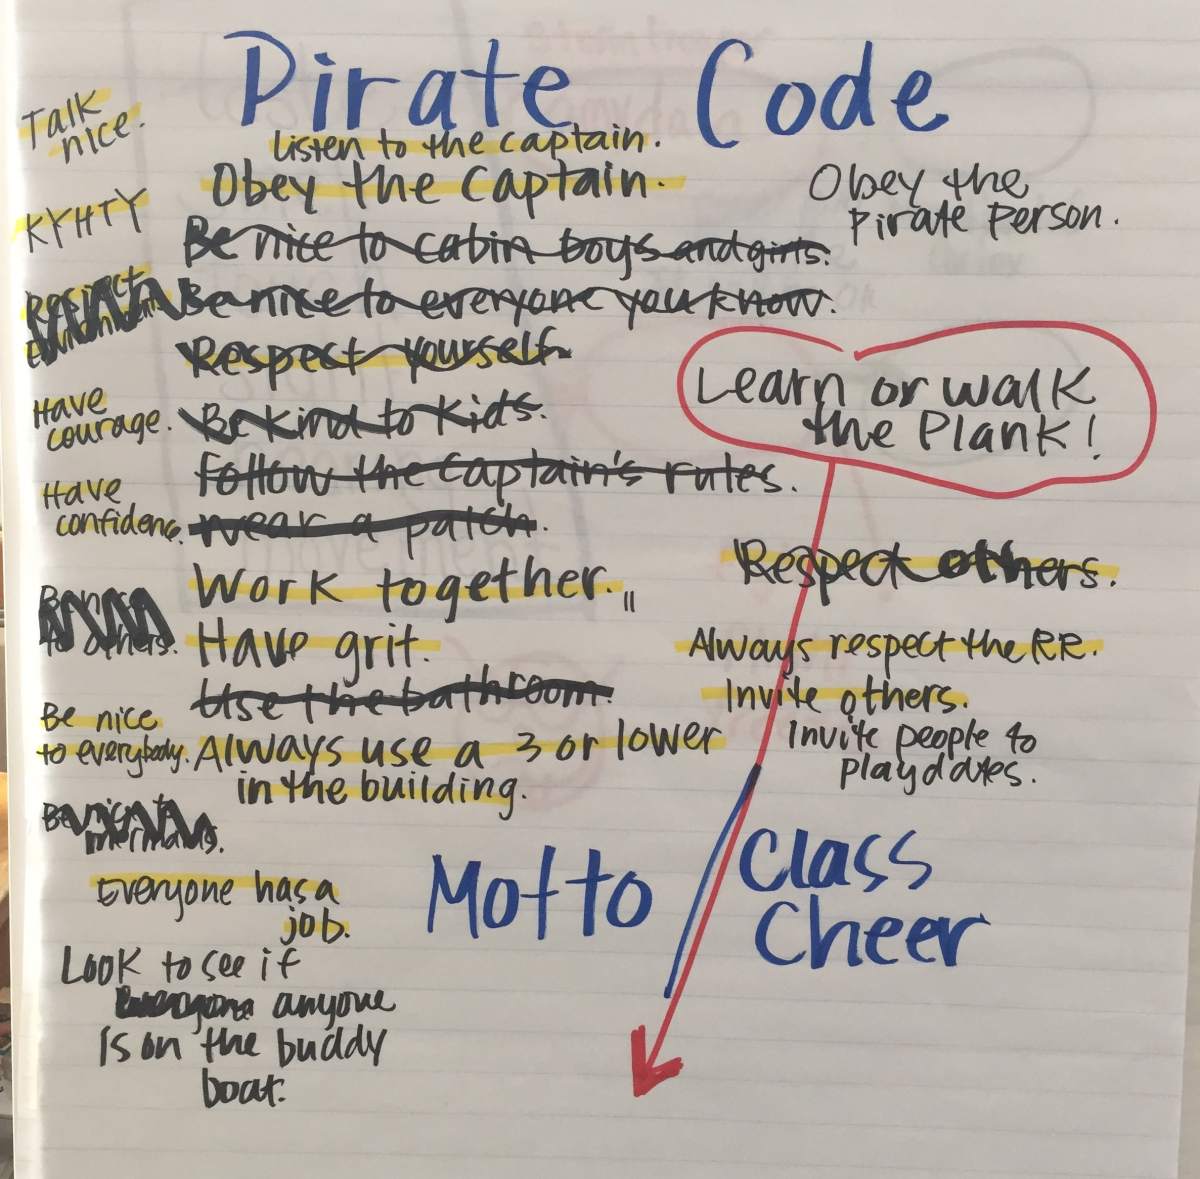 Pirate Code
Talk
nice.
KYHTY
Respect
Have
courage.
Have
confidence.
to others.
Be nice
to everybody.
mermaids.
Everyone has a
job.
Look to see if
anyone
is on the buddy
boat.
Listen to the captain.
Obey the captain.
Be nice to cabin boys and girls.
Be nice to everyone you know.
Respect yourself
Be kind to kids.
Follow the captain's rules.
wear a patch.
Work together. ||
Have grit.
Use the bathroom.
Always use a 3 or lower
in the building.
Obey the
Pirate Person.
Learn or walk
the Plank!
Respect others.
Always respect the RR.
Invite others.
Invite people to
playdates.
Motto
Class
Cheer